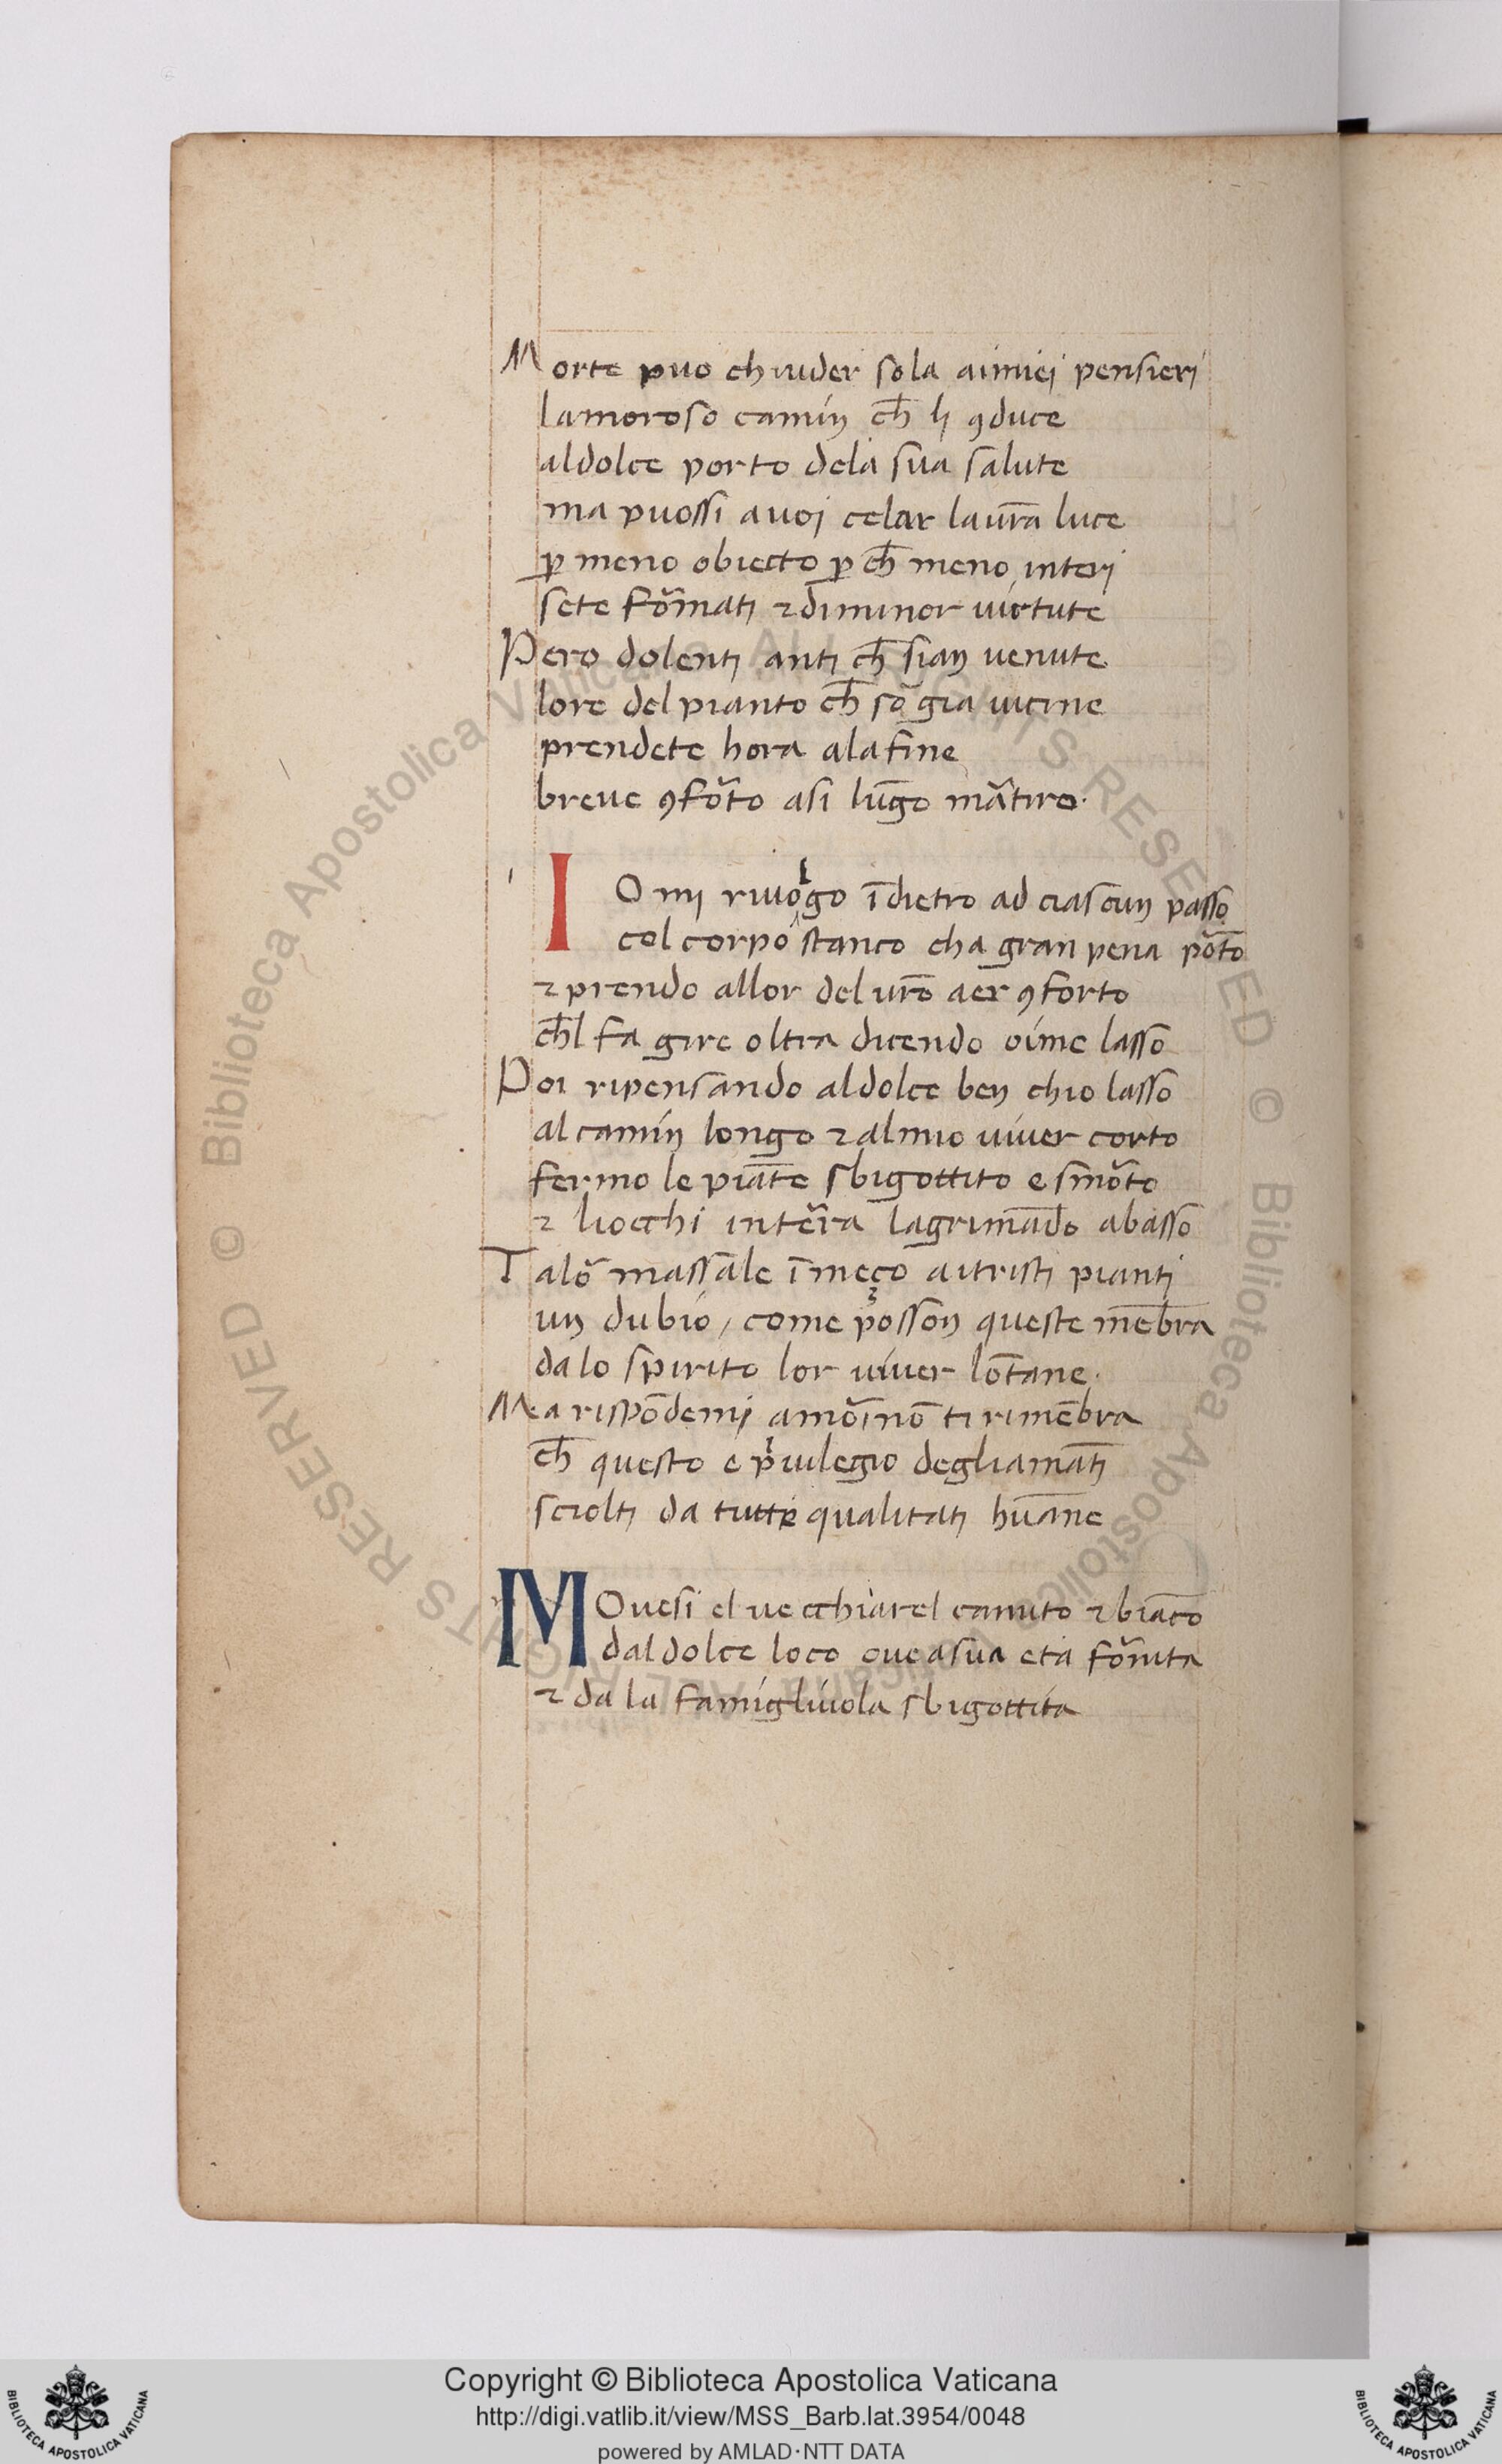 Morte puo chiuder sola aimiei pensieri
lamoroso camin ch̄ li ꝯduce
aldolce porto dela sua salute
ma puossi auoi celar laur̄a luce
ꝑ meno obiecto ꝑ ch̄ meno interi
sete fo᷑mati ⁊ diminor uirtute
Pero dolenti anti ch̄ sian uenute
lore del pianto ch̄ sō gia uicine
prendete hora alafine
breue ꝯfo᷑to asi lūgo ma᷑tiro.
IO mi riuolgo īdietro ad ciascun passo
col corpo stanco cha gran pena po᷑to
⁊ prendo allor del ur̄o aer ꝯforto
ch̄l fa gire oltra dicendo oime lasso
Poi ripensando aldolce ben chio lasso
al camin longo ⁊ almio uiuer corto
fermo le piāte sbigottito e smo᷑to
⁊ liocchi inte᷑ra lagrimādo abasso
Talo᷑ massale ī meço aitristi pianti
un dubio / come posson queste mēbra
da lo spirito lor uiuer lōtane.
Ma rispōdemi amo᷑ inō ti rimēbra
ch̄ questo e priuilegio degliamāti
sciolti da tutte qualitati hūane
MOuesi el uecchiarel canuto ⁊ biāco
dal dolce loco oue a sua eta fo᷑nita
⁊ da la famigliuola sbigottita
Copyright © Biblioteca Apostolica Vaticana
http://digi.vatlib.it/view/MSS_Barb.lat.3954/0048
powered by AMLAD·NTT DATA